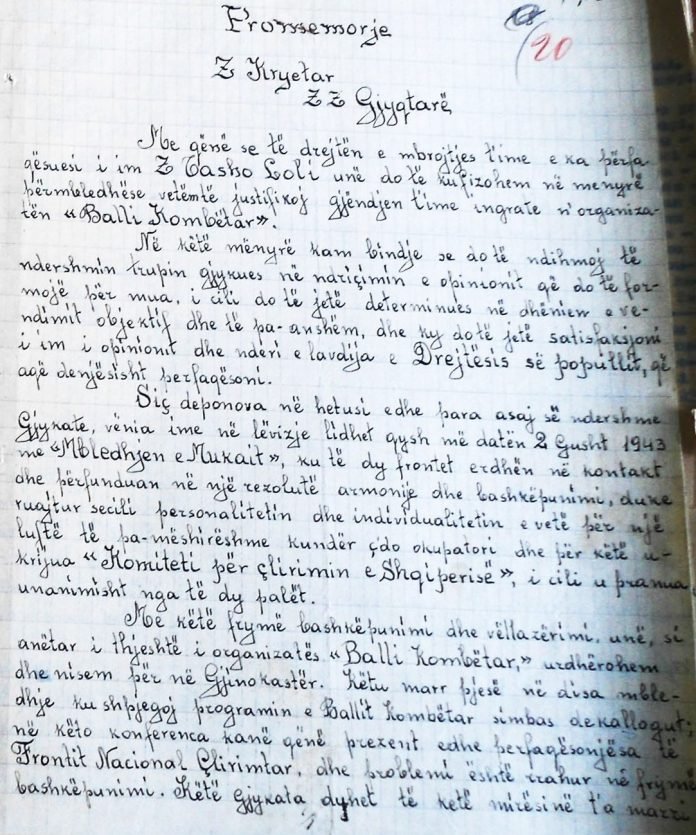 20
Promemorje
Z Kryetar
Z Z Gjyqtarë
Me qënë se të drejtën e mbrojtjes t'ime e ka përfa
qësuesi i im Z Vasho Loli unë do të kufizohem në menyrë
përmbledhëse vetëmtë justifikoj gjëndjen t'ime ingrate n'organiza-
tën «Balli Kombëtar».
Në këtë mënyrë kam bindje se do të ndihmoj të
ndershmin trupin gjykues në ndriçimin e opinionit që do të for-
mojë për mua, i cili do të jetë determinues në dhënien e ve-
ndimit objektif dhe të pa-anshëm, dhe ky do të jetë satisfaksjoni
i im i opinionit dhe nderi e lavdija e Drejtësis së popullit, që
aqë denjësisht perfaqësoni.
Siç deponova në hetusi edhe para asaj së ndershme
Gjykate, vënia ime në lëvizje lidhet qysh më datën 2 Gusht 1943
me «Mbledhjen e Mukait», ku të dy frontet erdhën në kontakt
dhe përfunduan në një rezolutë armonije dhe bashkëpunimi, duke
ruajtur secili personalitetin dhe individualitetin e vetë për një
luftë të pa-mëshirëshme kundër çdo okupatori dhe për këtë u-
krijua «Komiteti për çlirimin e Shqiperisë», i cili u pranua
unanimisht nga të dy palët.
Me këtë frymë bashkëpunimi dhe vëllazërimi, unë, si
anëtar i thjeshtë i organizatës «Balli Kombëtar,» urdhërohem
dhe nisem për në Gjinokastër. Këtu marr pjesë në disa mble-
dhje ku shpjegoj programin e Ballit Kombëtar simbas dekallogut;
në këto konferenca kanë qënë prezent edhe perfaqësonjësa të
Frontit Nacional Çlirimtar, dhe problemi është rrahur në frymë
bashkëpunimi. Këtë gjykata dyhet të ketë mirësinë t'a marri